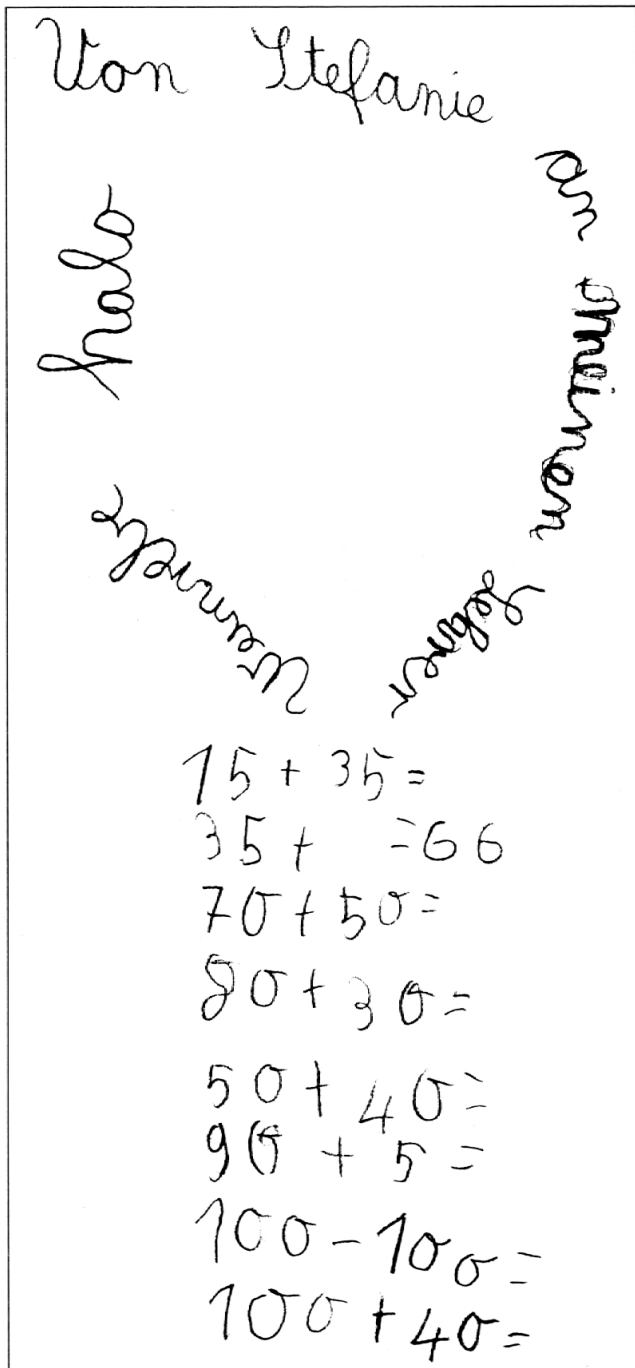 Von Stefanie
an
meinen
Lehrer
halo
15 + 35 =
35 +   = 66
70 + 50 =
80 + 30 =
50 + 40 =
90 + 5 =
100 - 100 =
100 + 40 =